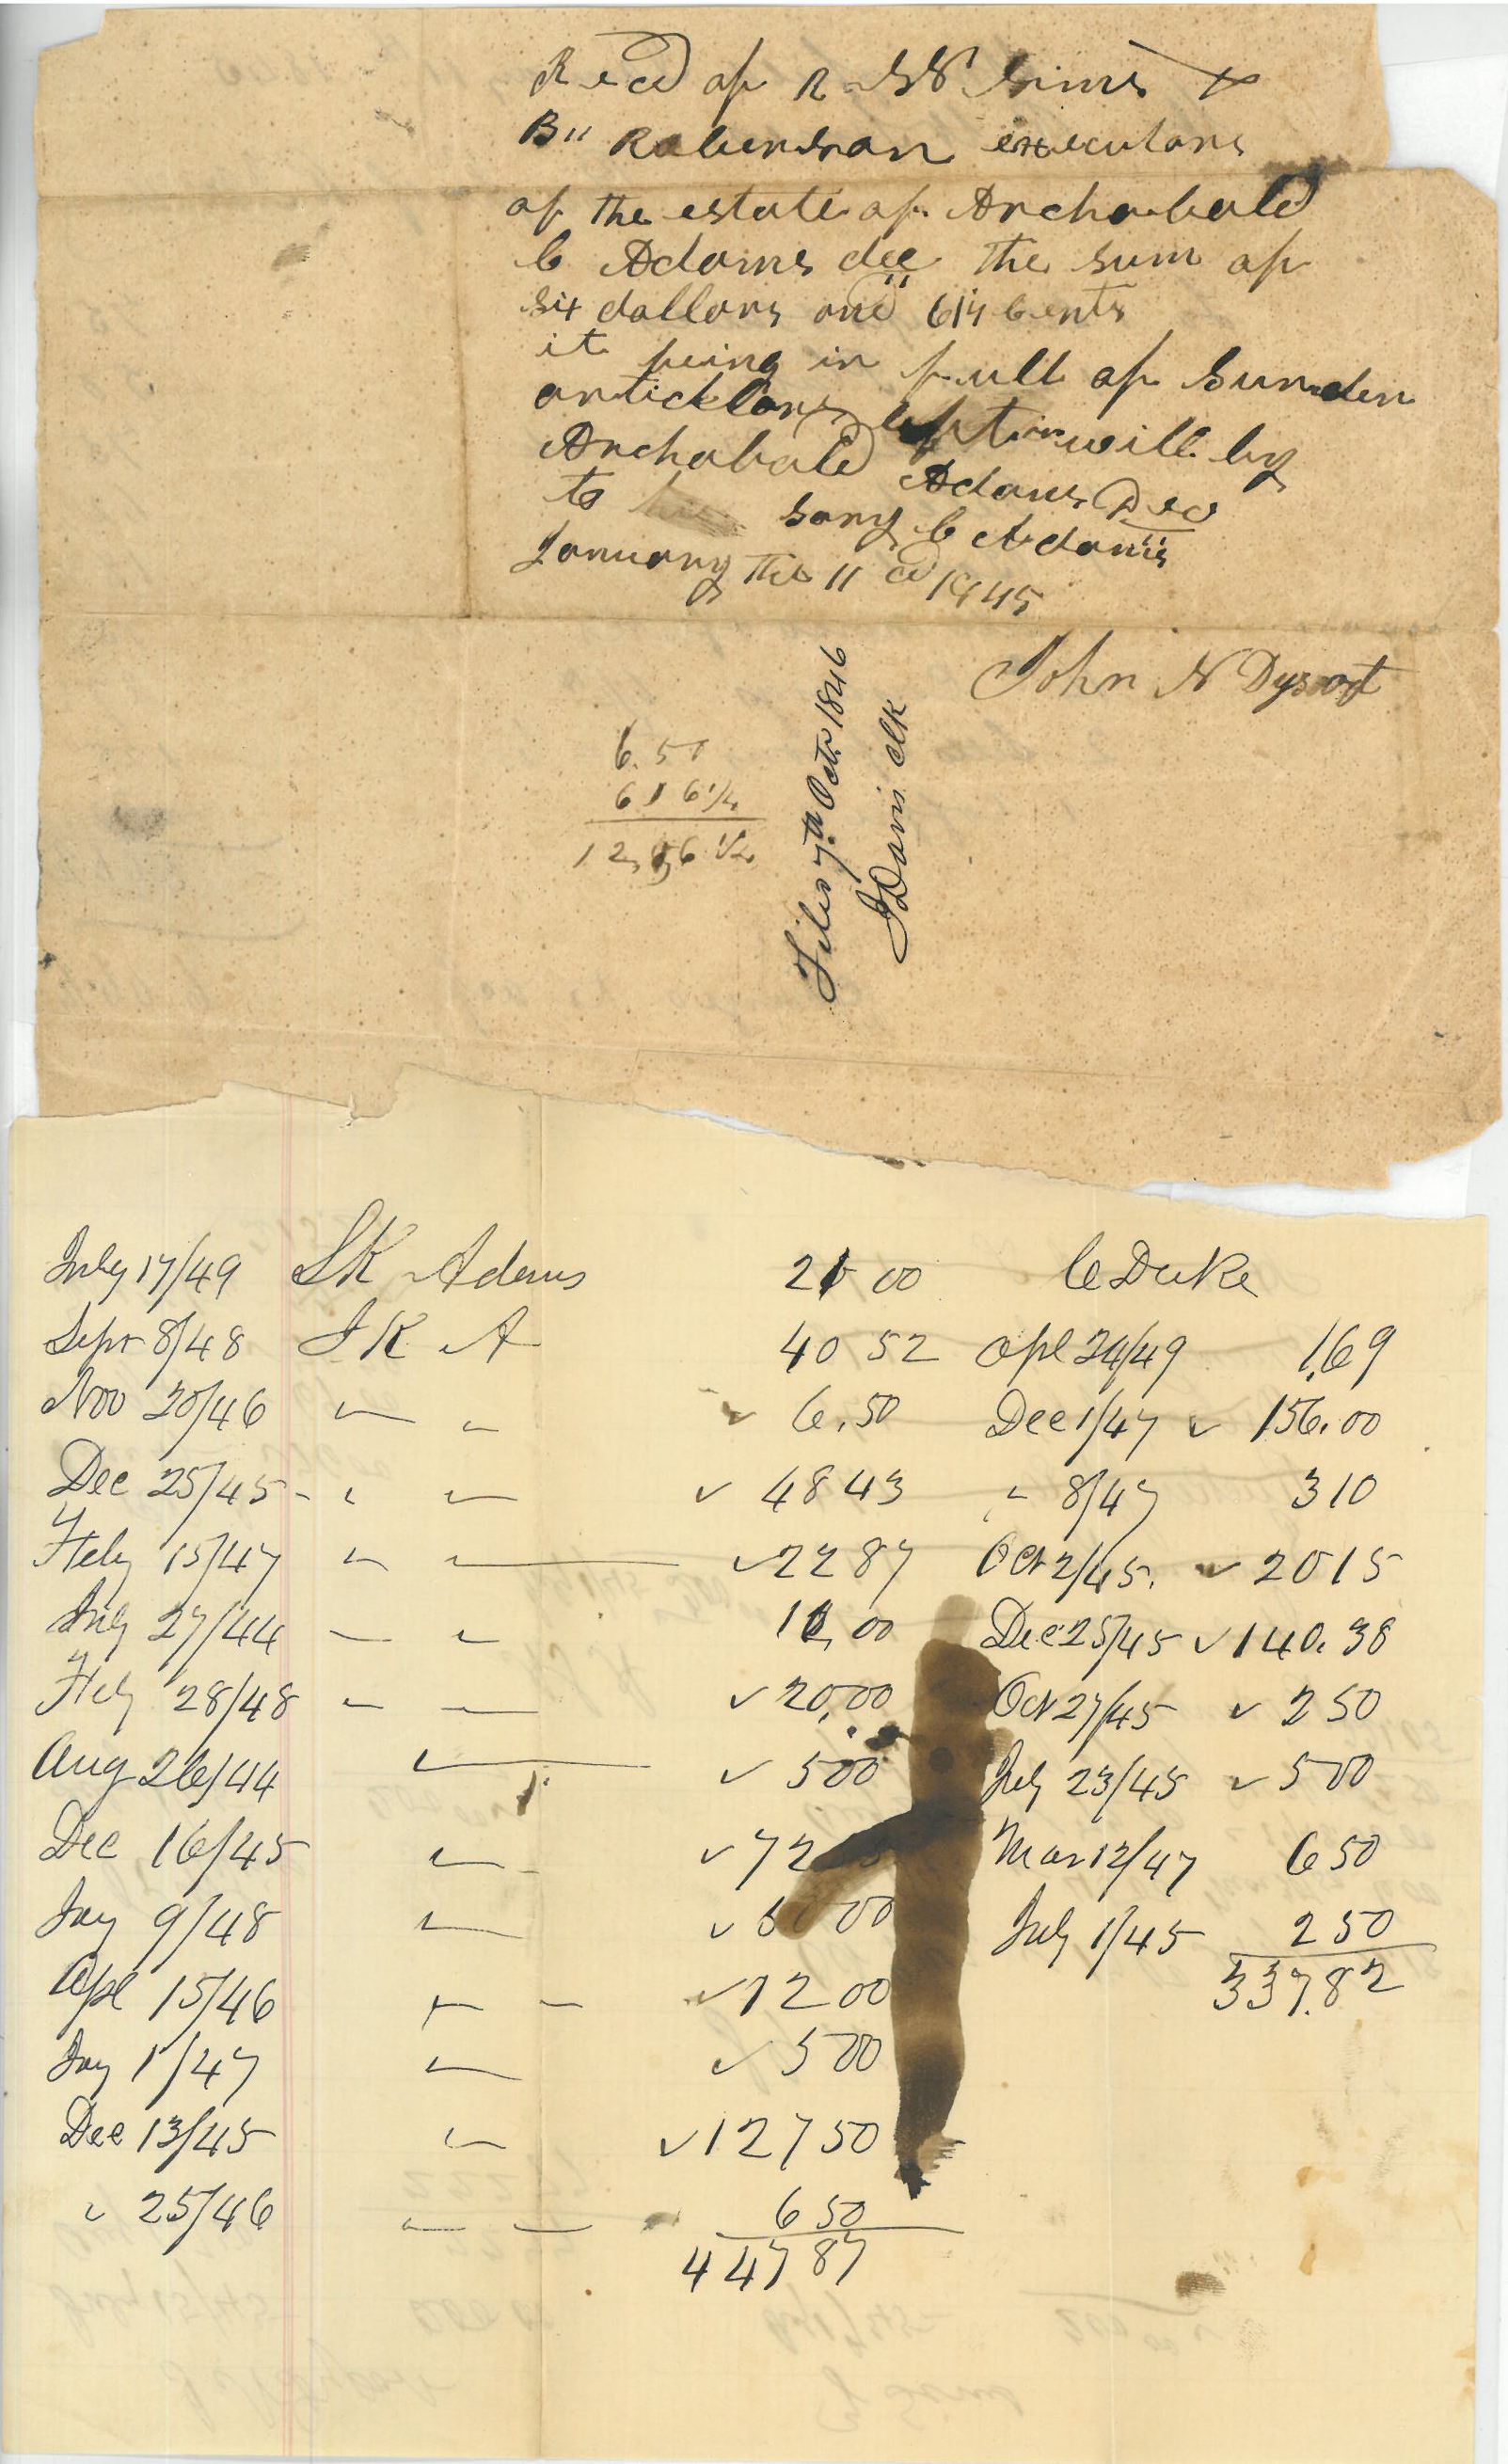 Recd of R W Sims &
B" Roberson executors
of the estate of Archabald
C Adams dec the sum of
six dollars and 6¼ cents
it being in full of Sunden
articklors left in will by
Archabald Adams Dec
to his sons C Adams
January the 11 cd 1845
John N Dysart
6.50
6 1 6¼
12,56 ½
Filed 7th Octr 1846
J Davis clk
July 17/49 SK Adams 21 00 C Duke
Sepr 8/48 S K A 40 52 Apl 24/49 1.69
Nov 20/46 " " ✓ 6.50 Dec 1/47 ✓ 156.00
Dec 25/45 - " " ✓ 48 43 " 8/47 3 10
Feby 15/47 " " ✓ 22 87 Oct 2/45. ✓ 20 15
Aug 27/44 " " 11,00 Dec 25/45 ✓ 140.38
Feby 28/48 " " ✓ 20,00 Oct 27/45 ✓ 2 50
Aug 26/44 " ✓ 5 00 July 23/45 ✓ 5 00
Dec 16/45 " ✓ 72 Mar 12/47 6 50
Jay 9/48 " ✓ 00 July 1/45 2 50
Apl 15/46 " " ✓ 12 00 337.82
Jay 1/47 " ✓ 5 00
Dec 13/45 " ✓ 127 50
" 25/46 " " 6 50
447 87